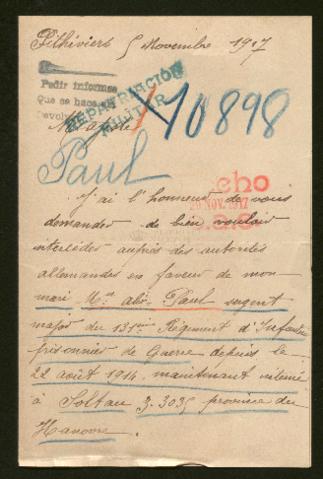 Pithiviers 5 Novembre 1917
Pedir informes
Que se hace
REPATRIACION
MILITAR
10898
Paul
J'ai l'honneur de vous
20 NOV. 1917
demander de bien vouloir
intercéder auprès des autorités
allemandes en faveur de mon
mari Mr Paul sergent
major du 131ème Régiment d'Infanterie
prisonnier de Guerre depuis le
22 août 1914 maintenant interné
à Soltau 3.3035 province du
Hanovre.